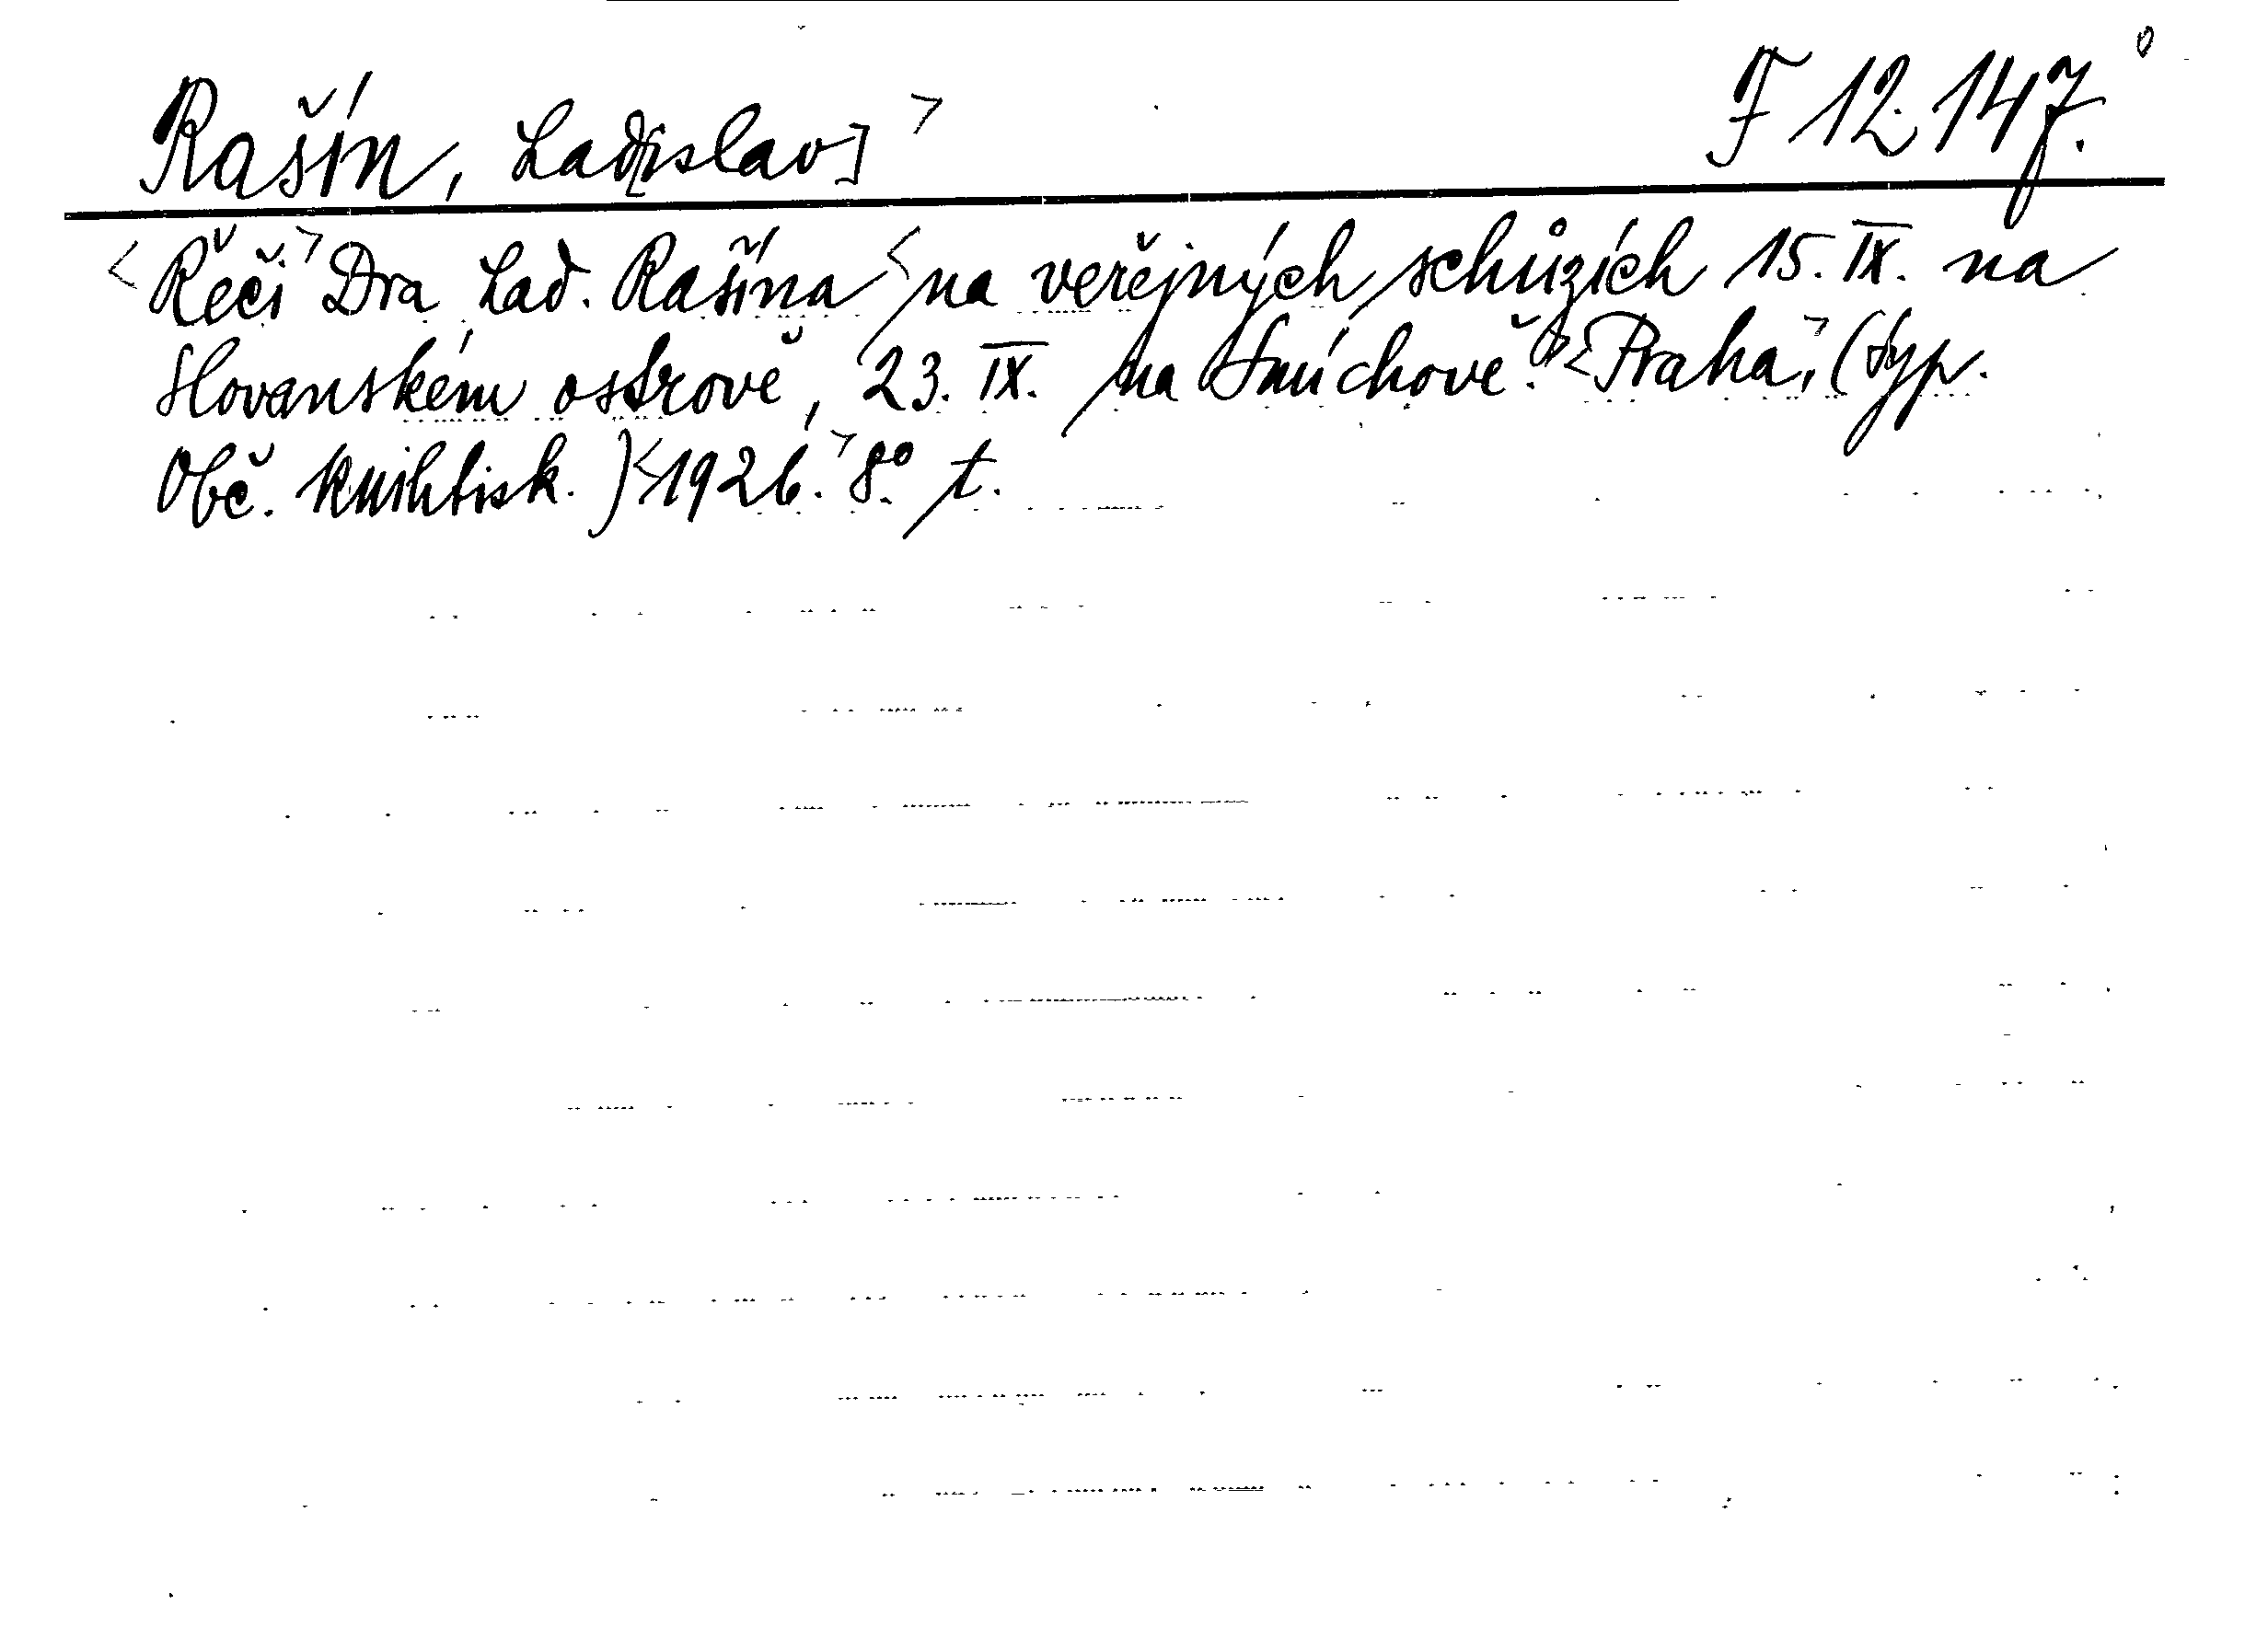 Rašín, Lad[islav] F 12.147.
Řeči Dra Lad. Rašína na veřejných schůzích 15. IX. na
Slovanském ostrově, 23. IX. na Smíchově. Praha, (typ.
Obč. knihtisk.) 1926. 8° t.